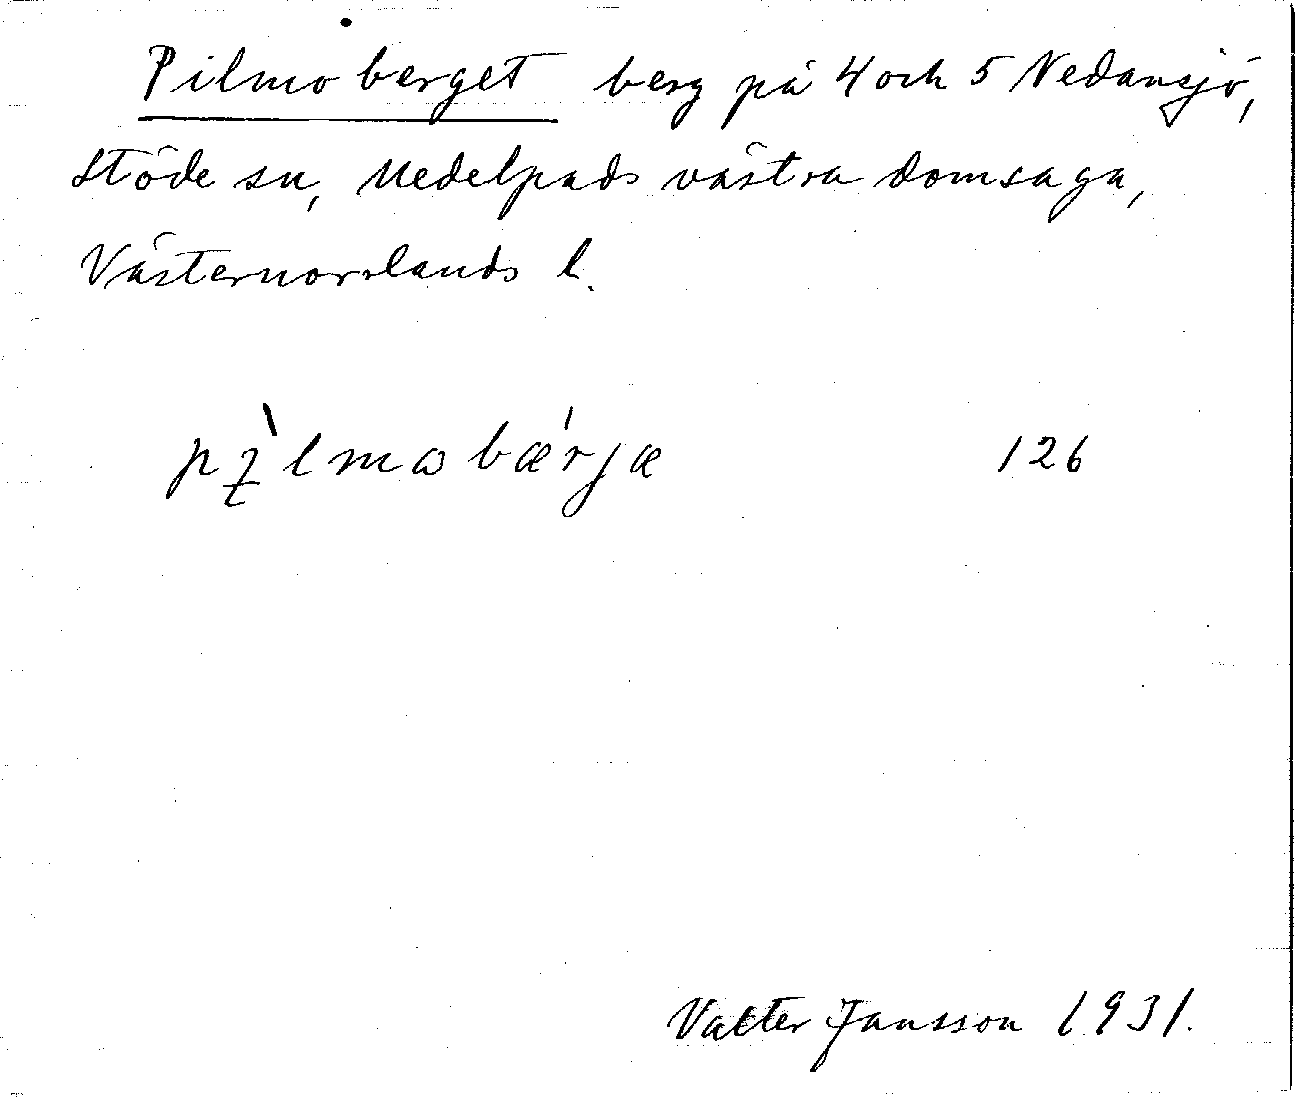 Pilmoberget berg på 4 och 5 Nedansjö,
Stöde sn, Medelpads västra domsaga,
Västernorrlands l.
126
Valter Jansson 1931.